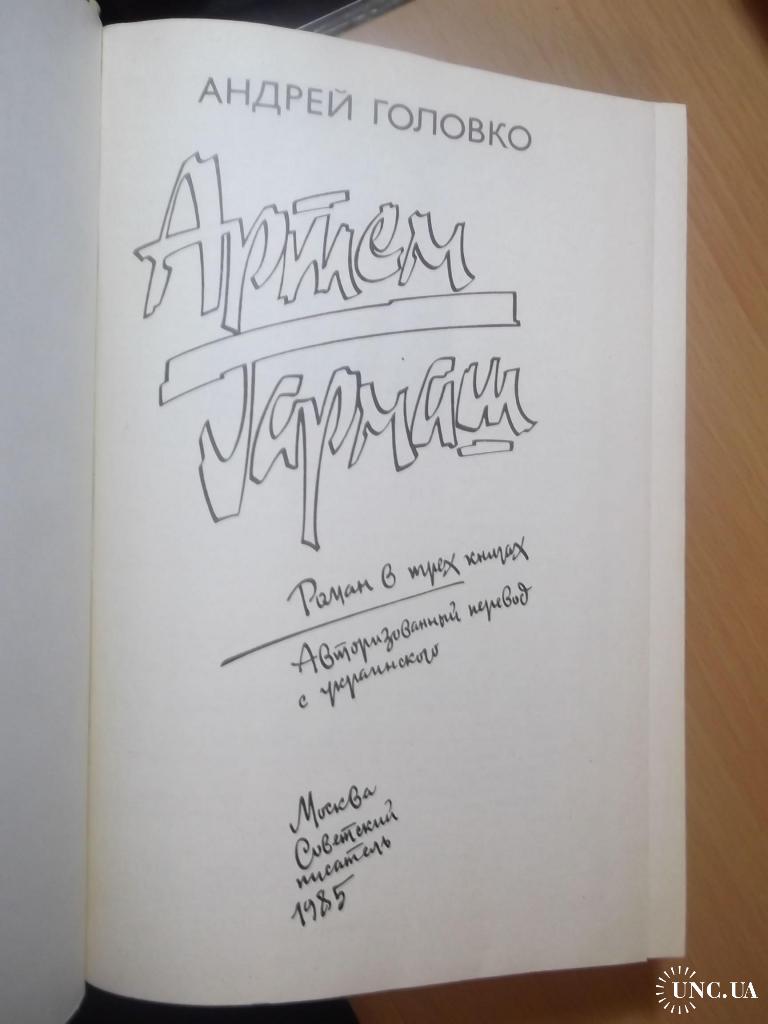 АНДРЕЙ ГОЛОВКО
Артем
Гармаш
Роман в трех книгах
Авторизованный перевод
с украинского
Москва
Советский
писатель
1985
UNC.UA